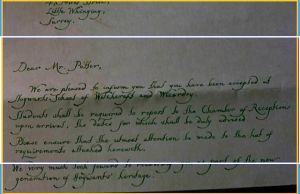 Little Whinging,
Surrey.
Dear Mr. Potter,
We are pleased to inform you that you have been accepted at
Hogwarts School of Witchcraft and Wizardry.
Students shall be required to report to the Chamber of Reception
upon arrival, the dates for which shall be duly advised
Please ensure that the utmost attention be made to the list of
requirements attached herewith.
We very much look forward to receiving you as part of the new
generation of Hogwarts' heritage.